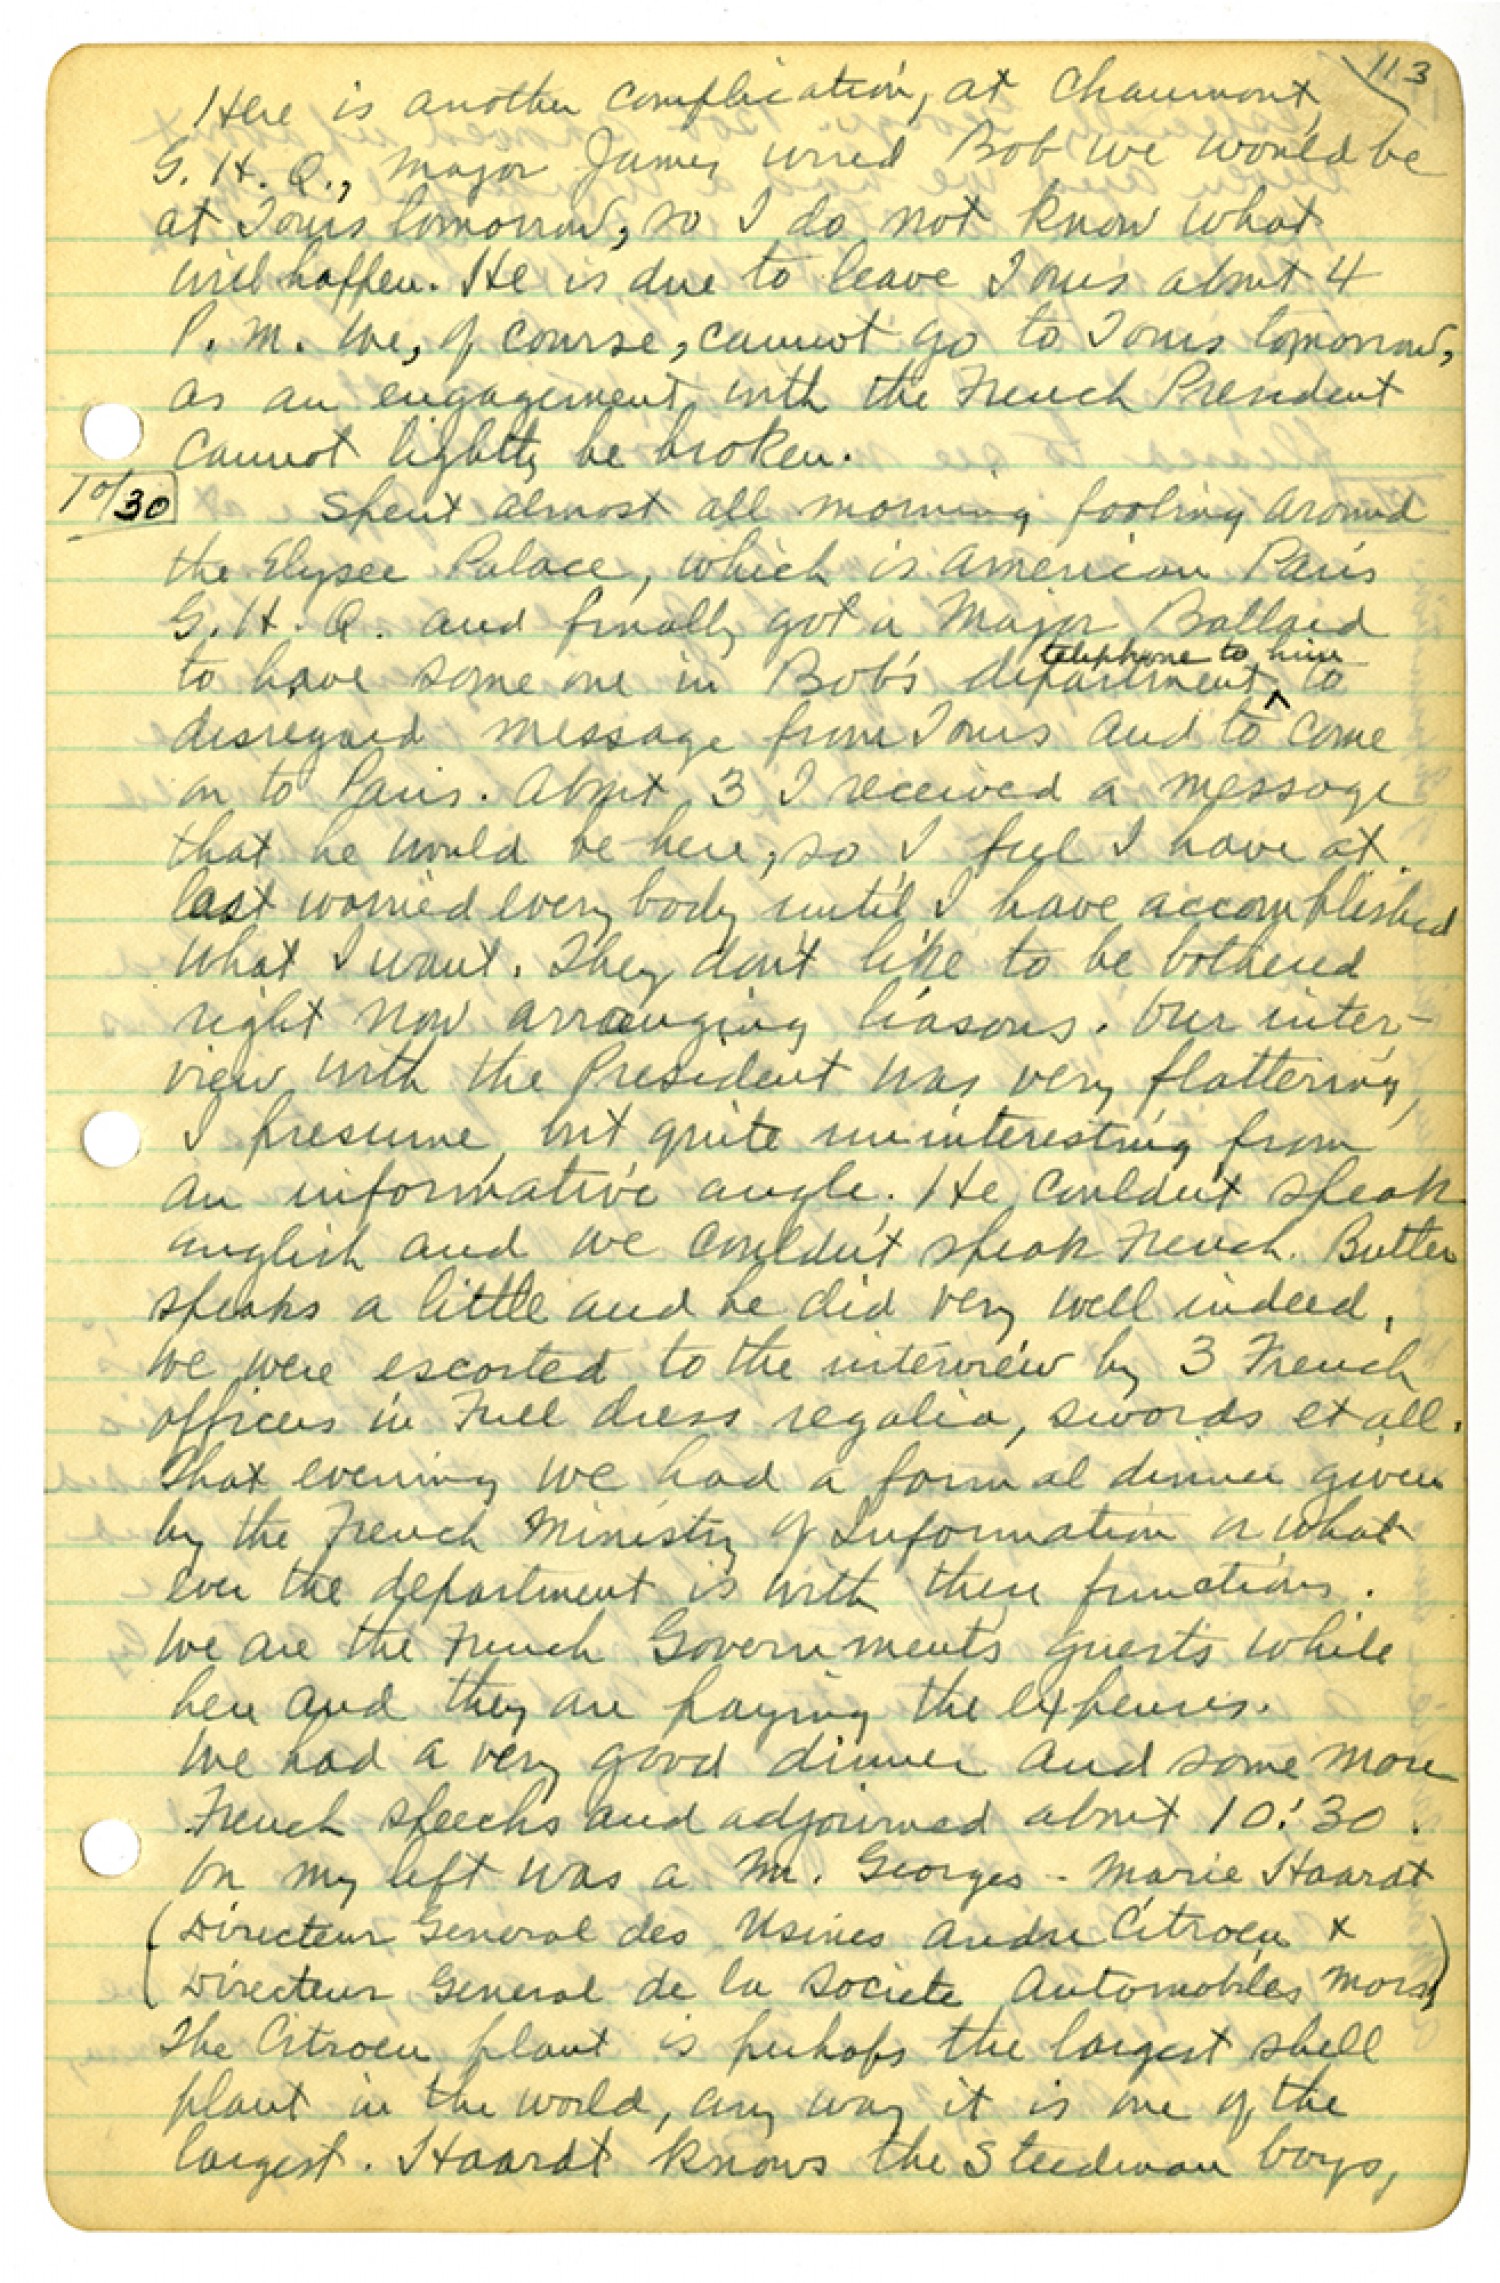 113
Here is another complication, at Chaumont,
G. H. Q., Major James wired Bob we would be
at Tours tomorrow, so I do not know what
will happen. He is due to leave Tours about 4
P. M. We, of course, cannot go to Tours tomorrow,
as an engagement with the French President
cannot lightly be broken.
10/30
Spent almost all morning fooling around
the Elysee Palace, which is American Paris
G. H. Q. and finally got a Major Ballard
to have some one in Bob's department ^ telephone to him to
disregard message from Tours and to come
on to Paris. About 3 I received a message
that he would be here, so I feel I have at
last worried every body until I have accomplished
what I want. They don't like to be bothered
right now arranging liasons. Our inter-
view with the President was very flattering,
I presume, but quite uninteresting from
an informative angle. He couldn't speak
anglish and we couldn't speak French. Butler
speaks a little and he did very well indeed.
We were escorted to the interview by 3 French
officers in Full dress regalia, swords et all.
That evening we had a formal dinner given
by the French Ministry of Information or what
ever the department is with these functions.
We are the French Governments guests while
here and they are paying the expenses.
We had a very good dinner and some more
French speechs and adjourned about 10:30.
On my left was a Mr. Georges-Marie Haardt
(Directeur General des Usines Andre Citroen &
Directeur General de la Societe Automobiles Mors)
The Citroen plant is perhaps the largest shell
plant in the world, any way it is one of the
largest. Haardt knows the Steedman boys,